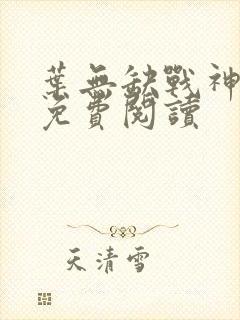 葉無缺戰神
免費閱讀
天清雪